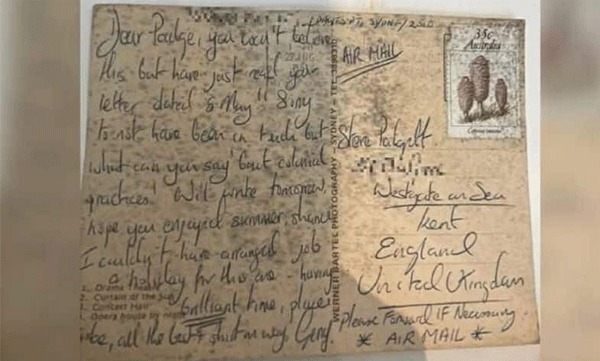 Dear Padge, you won't believe
this but have just read your
letter dated 5 May!! Sorry
to not have been in touch but
what can you say bout colonial
practices! Will write tomorrow,
hope you enjoyed summer, shame
I couldn't have arranged job
a holiday for this one - having
brilliant time, place
all the best
Gerry.
1. Drama Theatre
2. Curtain of the Sun
3. Concert Hall
4. Opera house by night
WERNER BARTEL PHOTOGRAPHY - SYDNEY
SYDNEY/2000
AIR MAIL
35c
Australia
Steve Padgett
Westgate on Sea
Kent
England
United Kingdom
Please Forward IF Necessary.
* AIR MAIL *